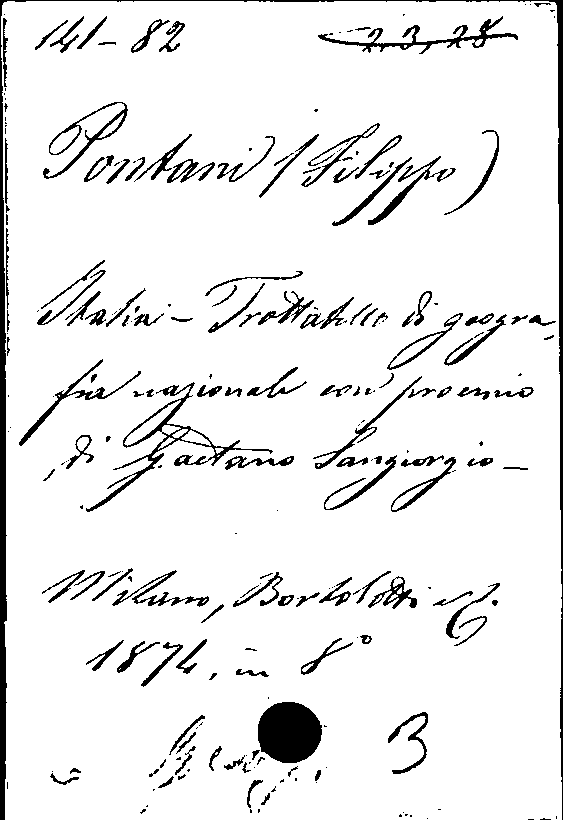 141-82 2.3,28
Pontani (Filippo)
Italia - Trattatello di geogra,
fia nazionale con proemio
di Gaetano Sangiorgio -
Milano, Bortolotti e C.
1874, in 8°
3